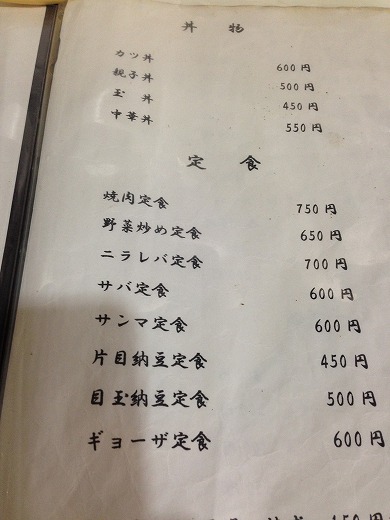 丼物
カツ丼 600円
親子丼 500円
玉丼 450円
中華丼 550円
定食
焼肉定食 750円
野菜炒め定食 650円
ニラレバ定食 700円
サバ定食 600円
サンマ定食 600円
片目納豆定食 450円
目玉納豆定食 500円
ギョーザ定食 600円